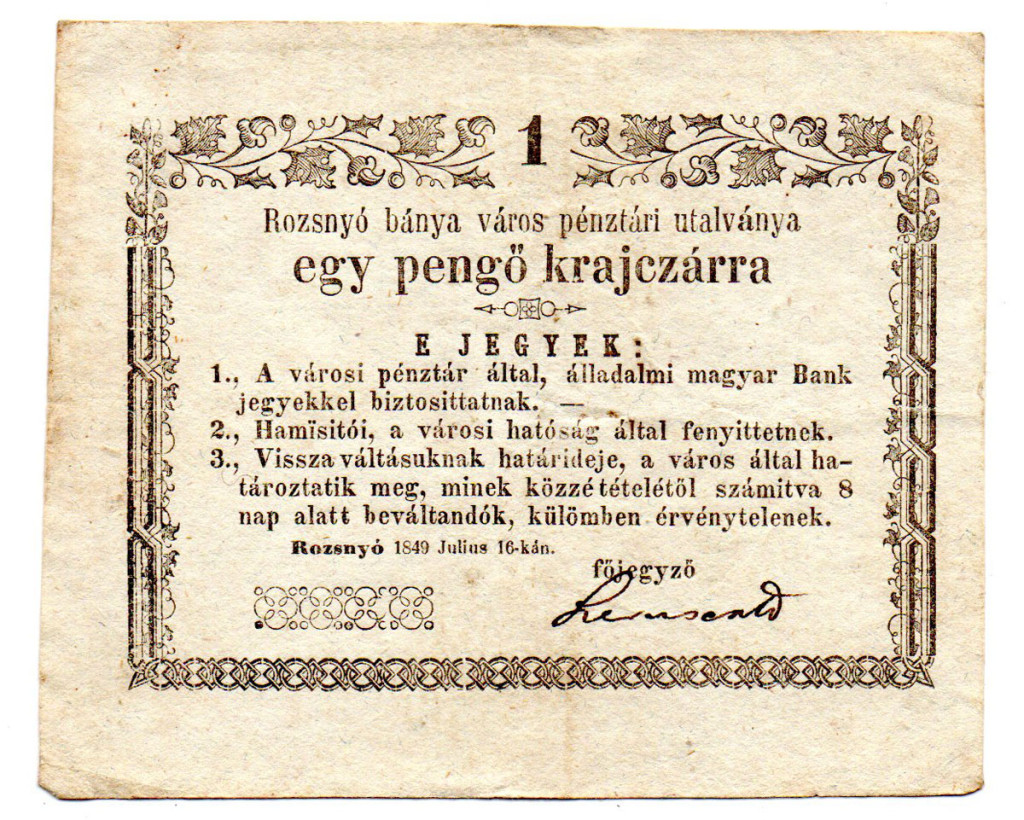 1
Rozsnyó bánya város pénztári utalványa
egy pengő krajczárra
E JEGYEK:
1., A városi pénztár által, álladalmi magyar Bank
jegyekkel biztosittatnak. —
2., Hamïsitói, a városi hatóság által fenyittetnek.
3., Vissza váltásuknak határideje, a város által ha–
tároztatik meg, minek közzé tételétől számitva 8
nap alatt beváltandók, külömben érvénytelenek.
Rozsnyó 1849 Julius 16-kán.
főjegyző